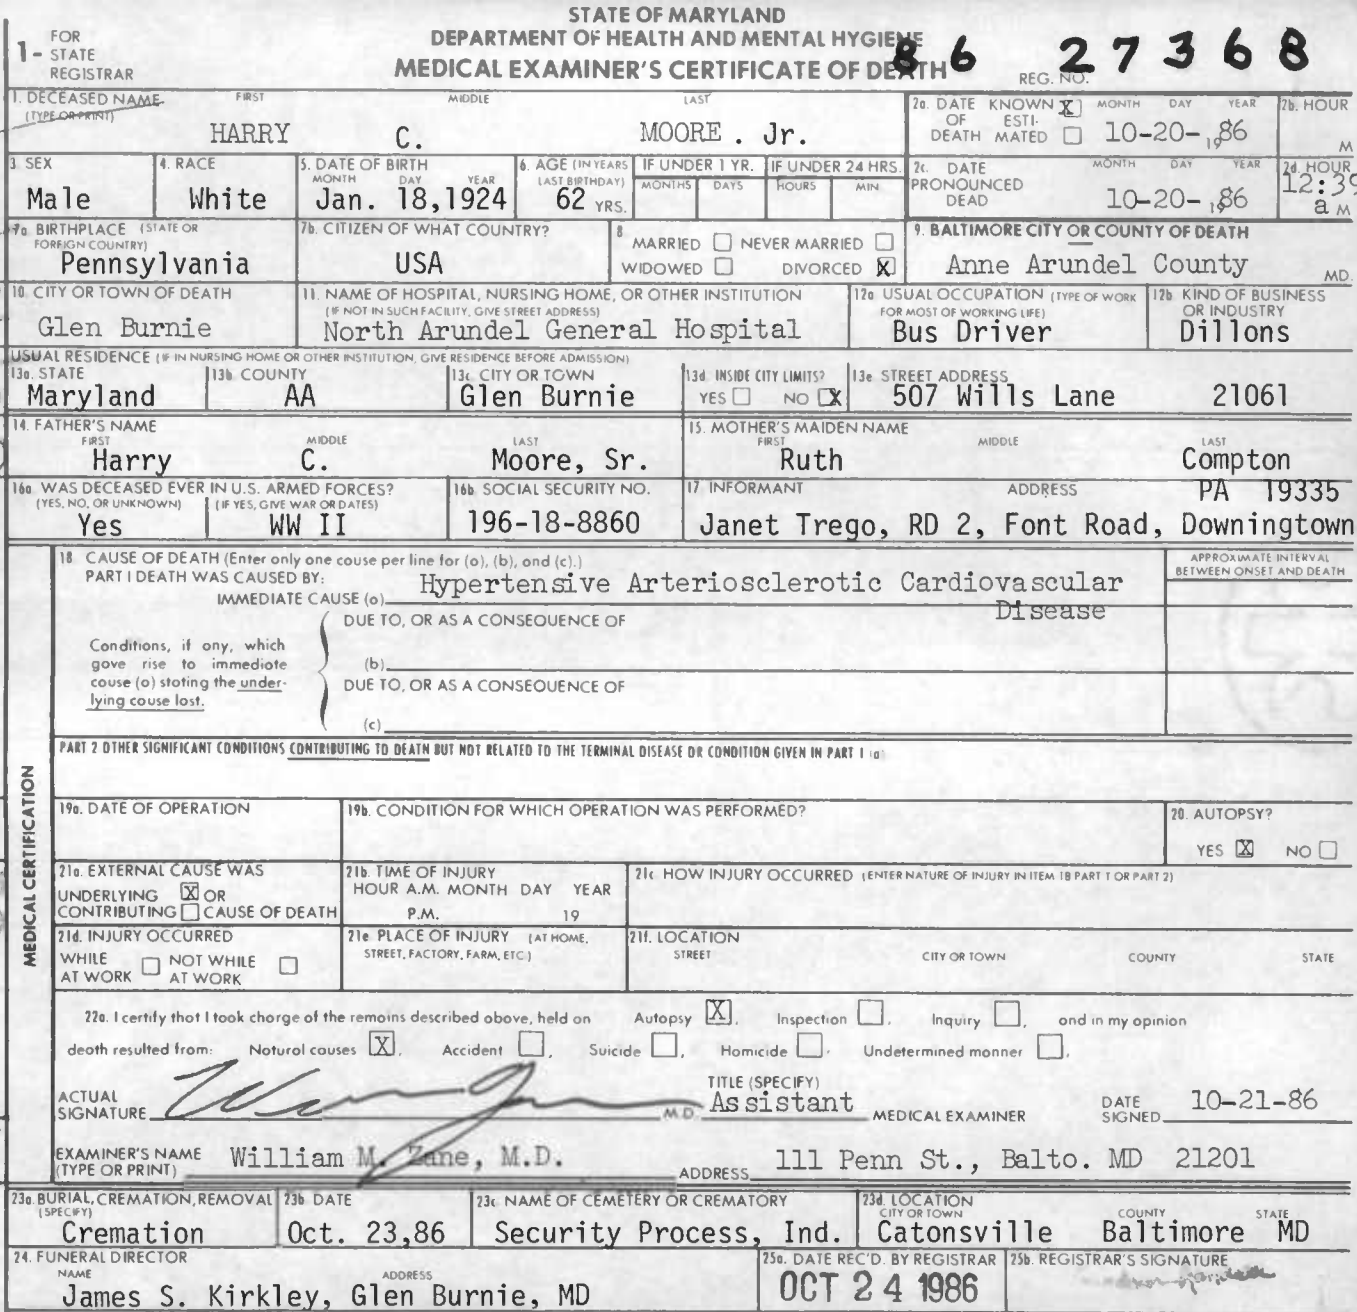 STATE OF MARYLAND
DEPARTMENT OF HEALTH AND MENTAL HYGIENE
MEDICAL EXAMINER'S CERTIFICATE OF DEATH
1- FOR STATE REGISTRAR
REG. NO. 86 27368
1. DECEASED NAME (TYPE OR PRINT) FIRST MIDDLE LAST
HARRY C. MOORE . Jr.
2a. DATE OF DEATH KNOWN X ESTIMATED MONTH DAY YEAR 10-20-1986
2b. HOUR M
3. SEX Male
4. RACE White
5. DATE OF BIRTH MONTH DAY YEAR Jan. 18,1924
6. AGE (IN YEARS LAST BIRTHDAY) 62 YRS.
IF UNDER 1 YR. MONTHS DAYS
IF UNDER 24 HRS. HOURS MIN.
2c. DATE PRONOUNCED DEAD MONTH DAY YEAR 10-20-1986
2d. HOUR 12:39 a M
7a. BIRTHPLACE (STATE OR FOREIGN COUNTRY) Pennsylvania
7b. CITIZEN OF WHAT COUNTRY? USA
8. MARRIED NEVER MARRIED
WIDOWED DIVORCED X
9. BALTIMORE CITY OR COUNTY OF DEATH
Anne Arundel County MD.
10. CITY OR TOWN OF DEATH Glen Burnie
11. NAME OF HOSPITAL, NURSING HOME, OR OTHER INSTITUTION
(IF NOT IN SUCH FACILITY, GIVE STREET ADDRESS)
North Arundel General Hospital
12a USUAL OCCUPATION (TYPE OF WORK FOR MOST OF WORKING LIFE) Bus Driver
12b KIND OF BUSINESS OR INDUSTRY Dillons
USUAL RESIDENCE (IF IN NURSING HOME OR OTHER INSTITUTION, GIVE RESIDENCE BEFORE ADMISSION)
13a. STATE Maryland
13b COUNTY AA
13c CITY OR TOWN Glen Burnie
13d INSIDE CITY LIMITS? YES NO X
13e STREET ADDRESS 507 Wills Lane 21061
14. FATHER'S NAME FIRST MIDDLE LAST
Harry C. Moore, Sr.
15. MOTHER'S MAIDEN NAME FIRST MIDDLE LAST
Ruth Compton
16a WAS DECEASED EVER IN U.S. ARMED FORCES?
(YES, NO, OR UNKNOWN) (IF YES, GIVE WAR OR DATES)
Yes WW II
16b SOCIAL SECURITY NO. 196-18-8860
17 INFORMANT ADDRESS PA 19335
Janet Trego, RD 2, Font Road, Downingtown
MEDICAL CERTIFICATION
18 CAUSE OF DEATH (Enter only one couse per line for (a), (b), and (c).)
APPROXIMATE INTERVAL BETWEEN ONSET AND DEATH
PART I DEATH WAS CAUSED BY:
IMMEDIATE CAUSE (a) Hypertensive Arteriosclerotic Cardiovascular
Disease
DUE TO, OR AS A CONSEQUENCE OF
Conditions, if any, which
gave rise to immediate
couse (a) stating the under-
lying couse last.
(b)
DUE TO, OR AS A CONSEQUENCE OF
(c)
PART 2 OTHER SIGNIFICANT CONDITIONS CONTRIBUTING TO DEATH BUT NOT RELATED TO THE TERMINAL DISEASE OR CONDITION GIVEN IN PART 1 (a)
19a. DATE OF OPERATION
19b. CONDITION FOR WHICH OPERATION WAS PERFORMED?
20. AUTOPSY?
YES X NO
21a. EXTERNAL CAUSE WAS
UNDERLYING X OR
CONTRIBUTING CAUSE OF DEATH
21b. TIME OF INJURY
HOUR A.M. MONTH DAY YEAR
P.M. 19
21c. HOW INJURY OCCURRED (ENTER NATURE OF INJURY IN ITEM 18 PART 1 OR PART 2)
21d. INJURY OCCURRED
WHILE AT WORK NOT WHILE AT WORK
21e PLACE OF INJURY (AT HOME, STREET, FACTORY, FARM, ETC)
21f. LOCATION
STREET CITY OR TOWN COUNTY STATE
22a. I certify that I took charge of the remains described above, held on Autopsy X, Inspection , Inquiry , and in my opinion
death resulted from: Natural causes X, Accident , Suicide , Homicide , Undetermined manner .
ACTUAL SIGNATURE M.D.
TITLE (SPECIFY) Assistant MEDICAL EXAMINER
DATE SIGNED 10-21-86
EXAMINER'S NAME (TYPE OR PRINT) William M. Zane, M.D.
ADDRESS 111 Penn St., Balto. MD 21201
23a. BURIAL, CREMATION, REMOVAL (SPECIFY) Cremation
23b DATE Oct. 23,86
23c NAME OF CEMETERY OR CREMATORY Security Process, Ind.
23d. LOCATION CITY OR TOWN COUNTY STATE
Catonsville Baltimore MD
24. FUNERAL DIRECTOR
NAME ADDRESS
James S. Kirkley, Glen Burnie, MD
25a. DATE REC'D. BY REGISTRAR
OCT 24 1986
25b. REGISTRAR'S SIGNATURE